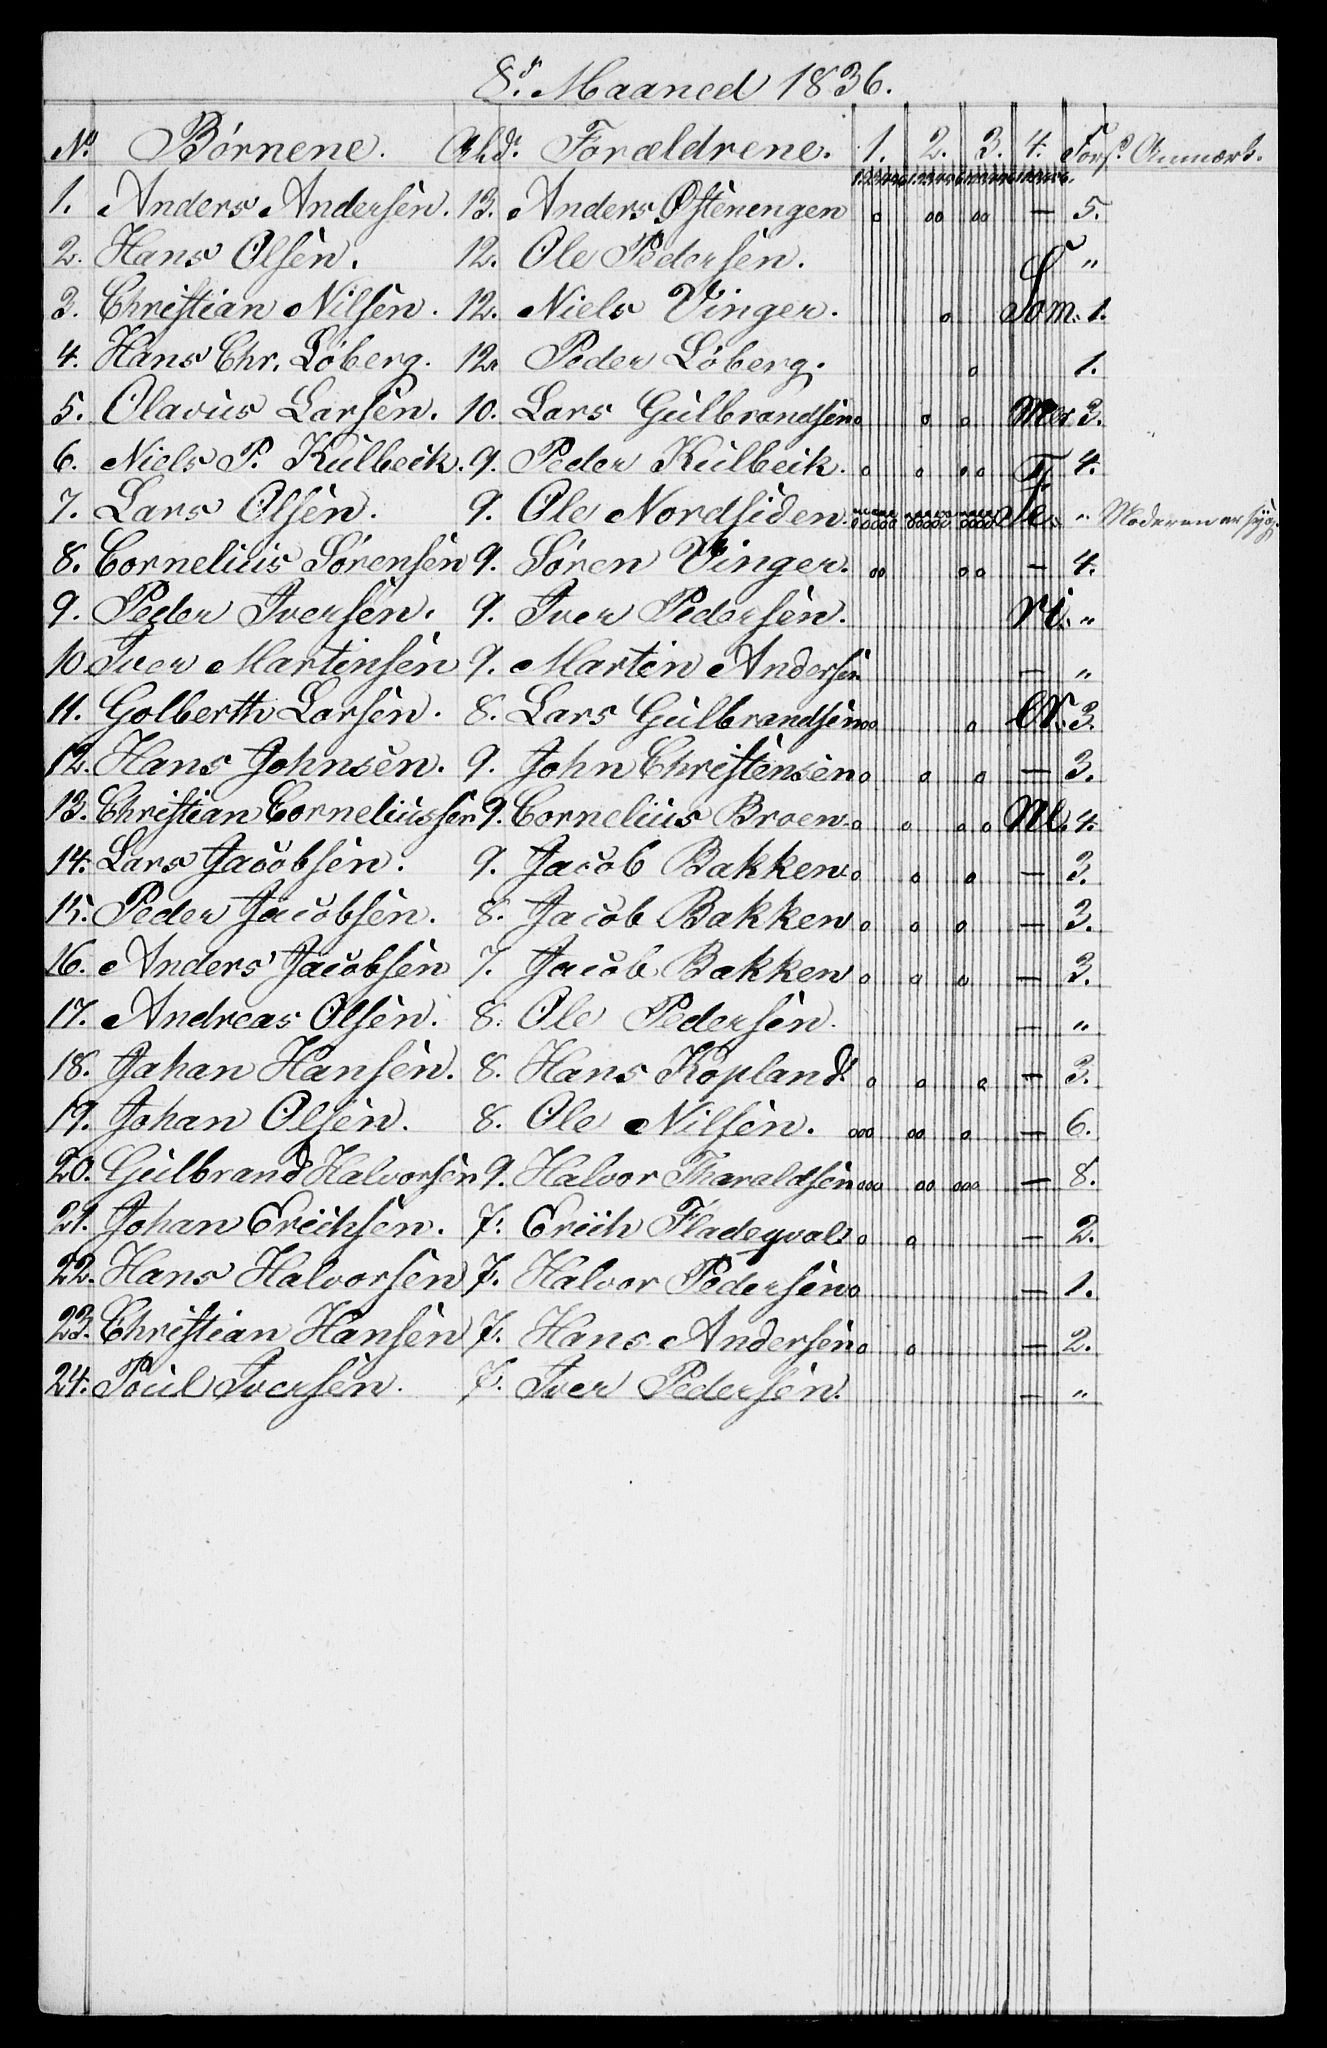 8de Maaned 1836.
No. Børnene. Ald. Forældrene. 1. 2. 3. 4. Fors. Anmærk.
1. Anders Andersen. 13. Anders Østenengen o oo oo — 5.
2. Hans Olsen. 12. Ole Pedersen. "
3. Christian Nilsen. 12. Niels Vinger. o Som. 1.
4. Hans Chr. Löberg. 12. Peder Löberg. o 1.
5. Olavus Larsen. 10. Lars Gulbrandsen o o o 3.
6. Niels P. Kulbeik. 9. Peder Kulbeik. o o oo 4.
7. Lars Olsen. 9. Ole Nordsiden " Moderen er syg.
8. Cornelius Sørensen 9. Søren Vinger. oo oo — 4.
9. Peder Iversen. 9. Iver Pedersen. ri. "
10. Iver Martinsen 9. Martin Andersen — "
11. Golberth Larsen. 8. Lars Gulbrandsen oo o er. 3.
12. Hans Johnsen. 9. John Christensen o o o — 3.
13. Christian Corneliussen 9. Cornelius Broen o o oo 4.
14. Lars Jacobsen. 9. Jacob Bakken o o o — 3.
15. Peder Jacobsen. 8. Jacob Bakken o o o — 3.
16. Anders Jacobsen 7. Jacob Bakken o o o — 3.
17. Andreas Olsen. 8. Ole Pedersen. — "
18. Johan Hansen. 8. Hans Kopland. o o o — 3.
19. Johan Olsen. 8. Ole Nilsen. ooo oo o — 6.
20. Gulbrand Halvorsen 9. Halvor Tharaldsen ooo oo ooo — 8.
21. Johan Erichsen. 7. Erich Fladeqval. o o — 2.
22. Hans Halvorsen 7. Halvor Pedersen o — 1.
23. Christian Hansen 7. Hans Andersen o o — 2.
24. Poul Iversen. 7. Iver Pedersen. — "